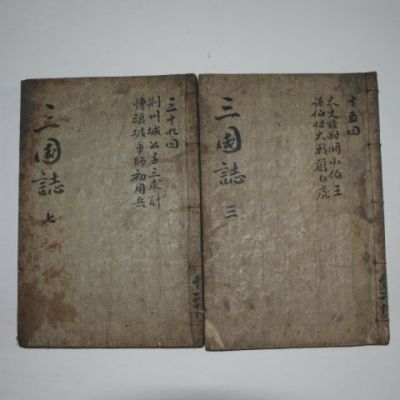 十五回
太史慈酣鬪小伯王
孫伯符大戰嚴白虎
三國誌 三
三十九回
荊州城公子三求計
博望坡軍師初用兵
三國誌 七